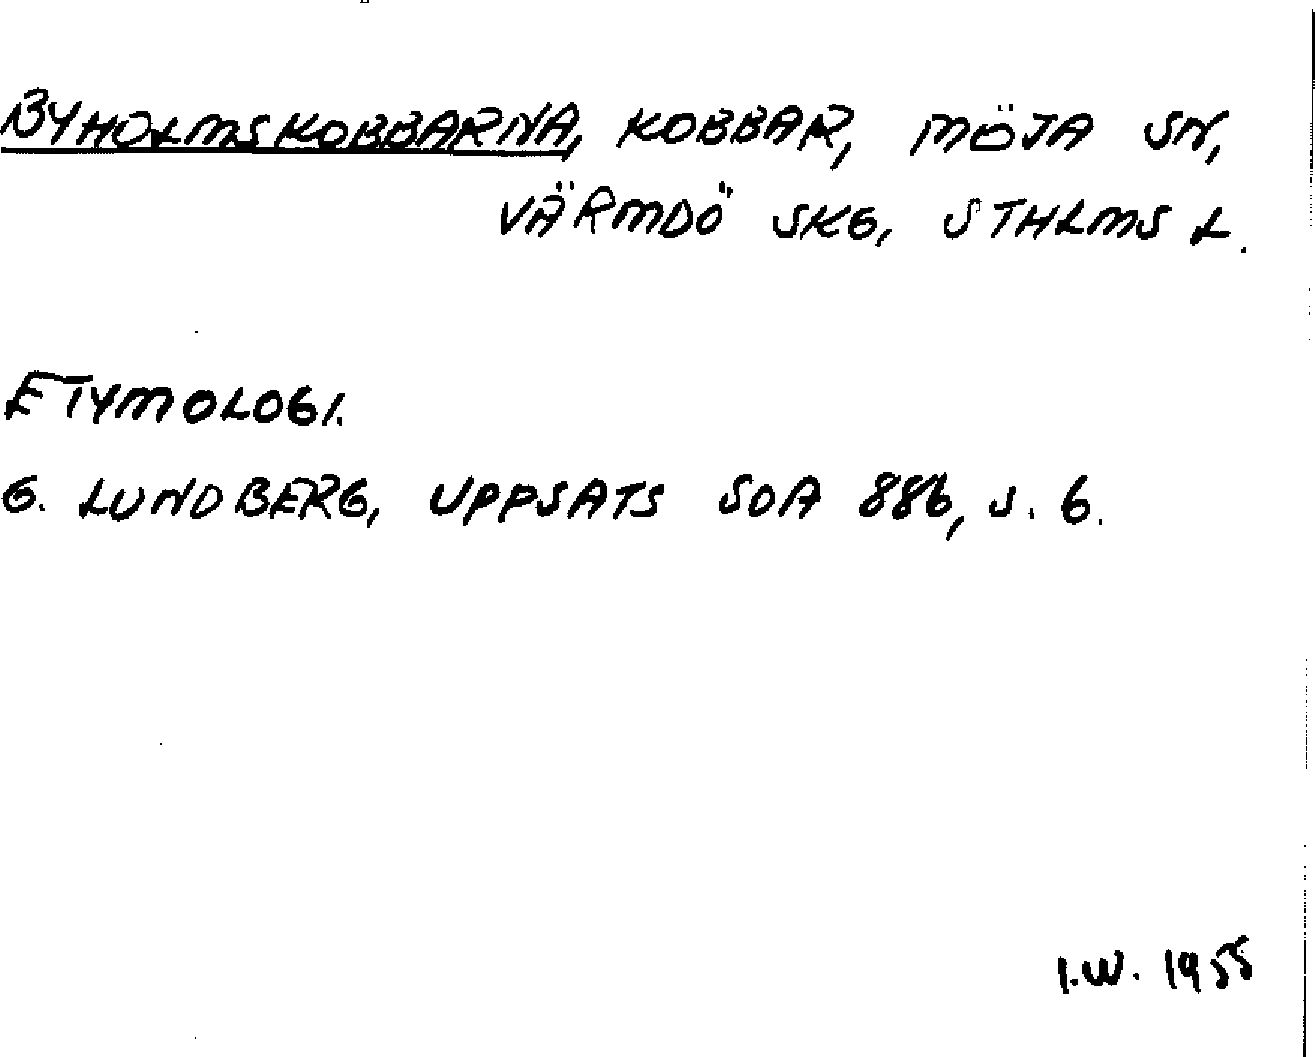 BYHOLMSKOBBARNA, KOBBAR, MÖJA SN,
VÄRMDÖ SKG, STHLMS L.
ETYMOLOGI.
G. LUNDBERG, UPPSATS SOA 886, S. 6.
I.W. 1955